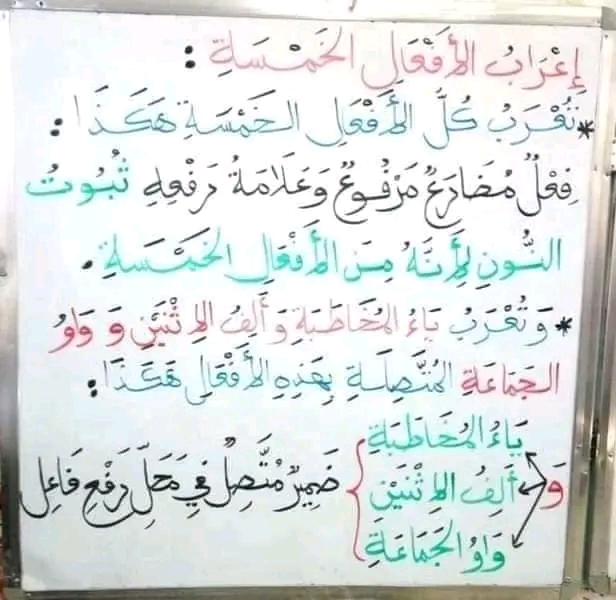 إِعْرَابُ الأَفْعَالِ الخَمْسَةِ :
* تُعْرَبُ كُلُّ الأَفْعَالِ الخَمْسَةِ هَكَذَا :
فِعْلٌ مُضَارِعٌ مَرْفُوعٌ وَعَلَامَةُ رَفْعِهِ ثُبُوتُ
النُّونِ لِأَنَّهُ مِنَ الأَفْعَالِ الخَمْسَةِ .
* وَ تُعْرَبُ يَاءُ المُخَاطَبَةِ وَ أَلِفُ الِاثْنَيْنِ وَ وَاوُ
الجَمَاعَةِ المُتَّصِلَةِ بِهَذِهِ الأَفْعَالِ هَكَذَا :
يَاءُ المُخَاطَبَةِ
وَ أَلِفُ الِاثْنَيْنِ ضَمِيرٌ مُتَّصِلٌ فِي مَحَلِّ رَفْعِ فَاعِل
وَاوُ الجَمَاعَةِ